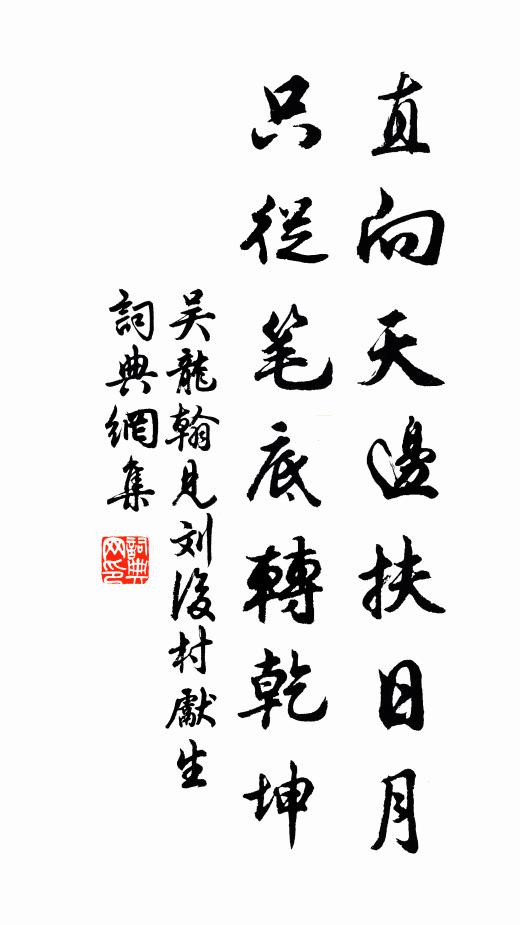 直向天邊扶日月
只從笔底轉乾坤
吴龍翰見刘後村獻生
詞典網集
詞典网印